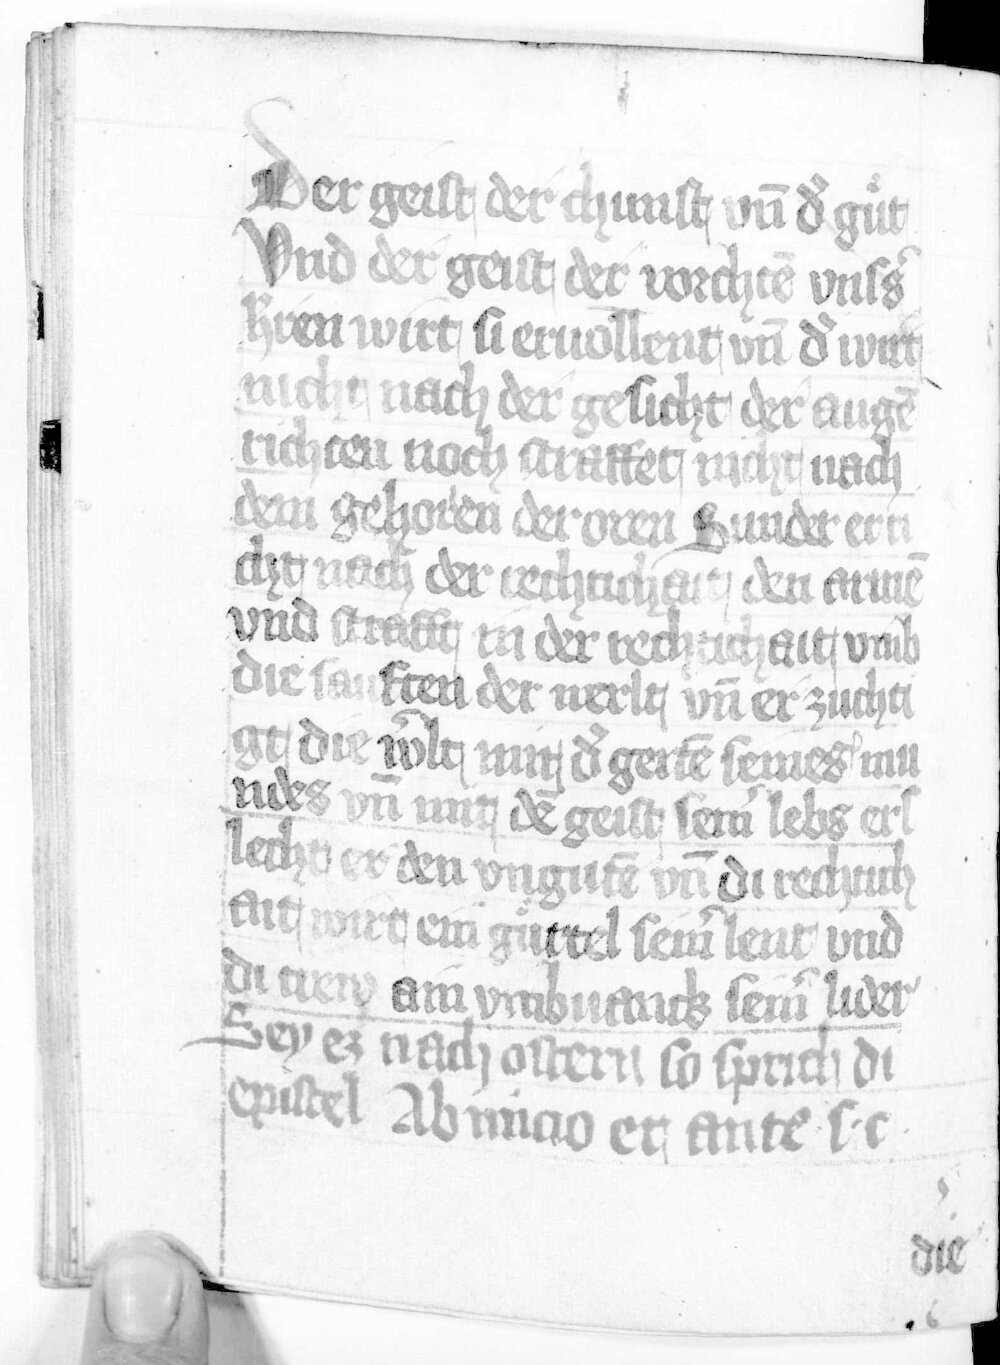 Der geist der chunst vn̄ d̓ gůt
Vnd der geist der vorchtē vnss̓
hren wirt si eruōllent vn̄ d̓ wirt
nicht nach der gesicht der augē
richten noch straffet nicht nach
dem gehoren der oren Sunder er ri
cht nach der rechtichait den armē
vnd strafft in der rechtichait vmb
die sanften der werlt vn̄ er zuchti
gt die w̓lt mit d̓ gertē seines mu
ndes vn̄ mit dē geist sein̓ lebs ers
lecht er den vngutē vn̄ di rechtich
ait wirt ein gůrtel sein̓ lent vnd
di trew ain vmbuantk sein̓ lider
Sey ez nach ostern so sprich di
epistel Ab inicio et ante s·c·
die